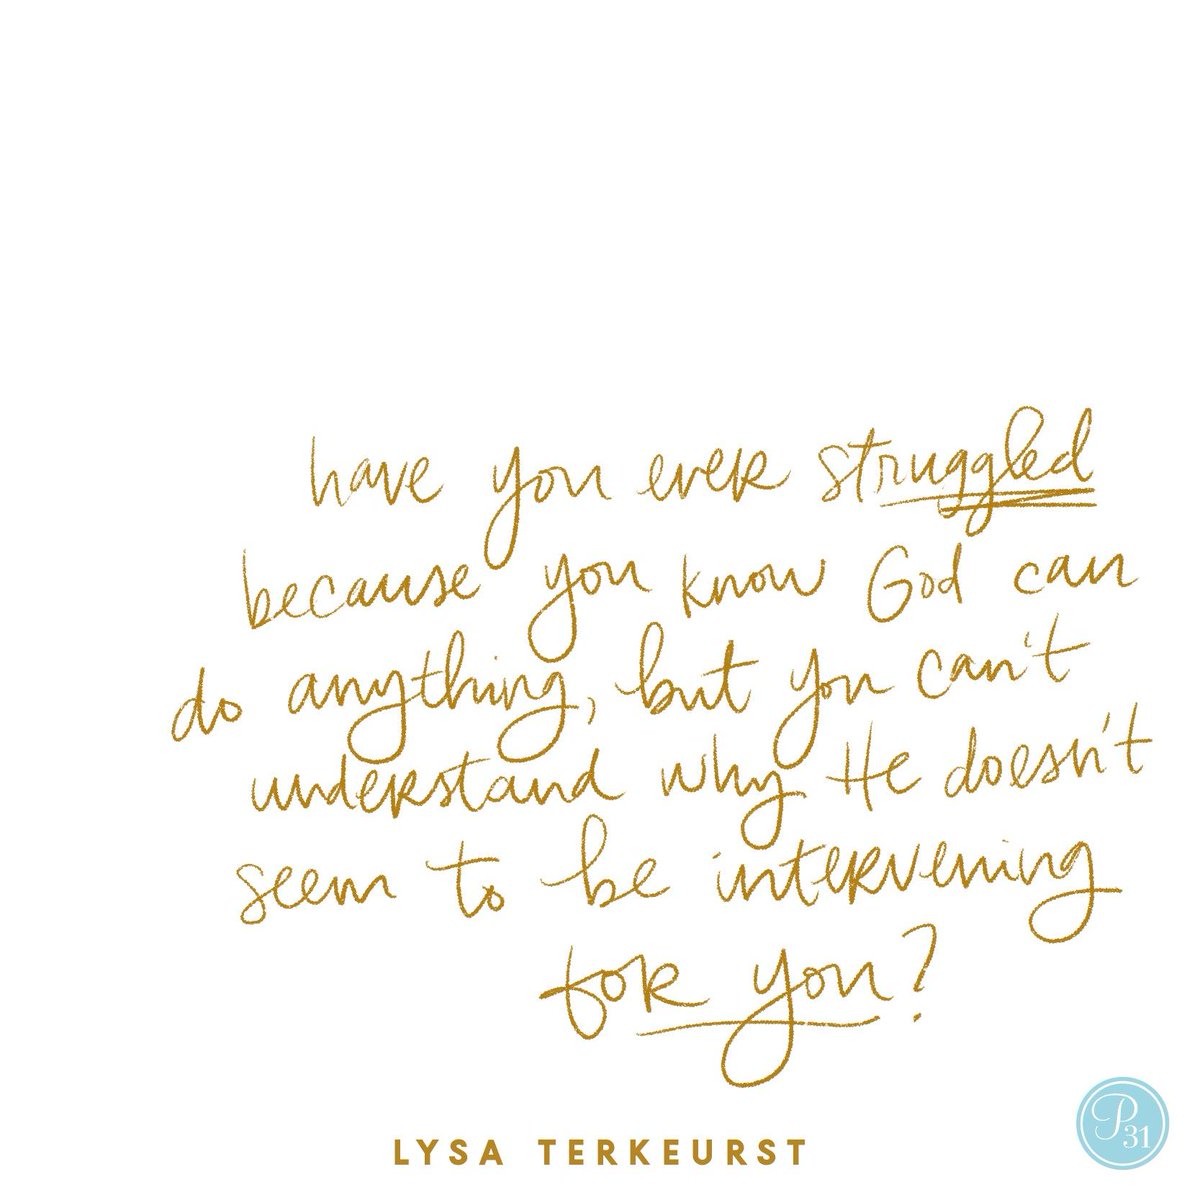 have you ever struggled
because you know God can
do anything, but you can't
understand why He doesn't
seem to be intervening
for you?
LYSA TERKEURST
P31